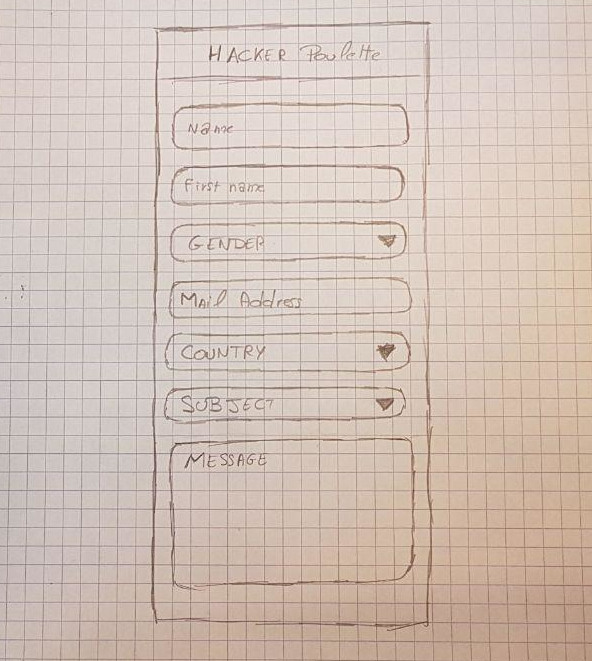 HACKER Poulette
Name
First name
GENDER
Mail Address
COUNTRY
SUBJECT
MESSAGE